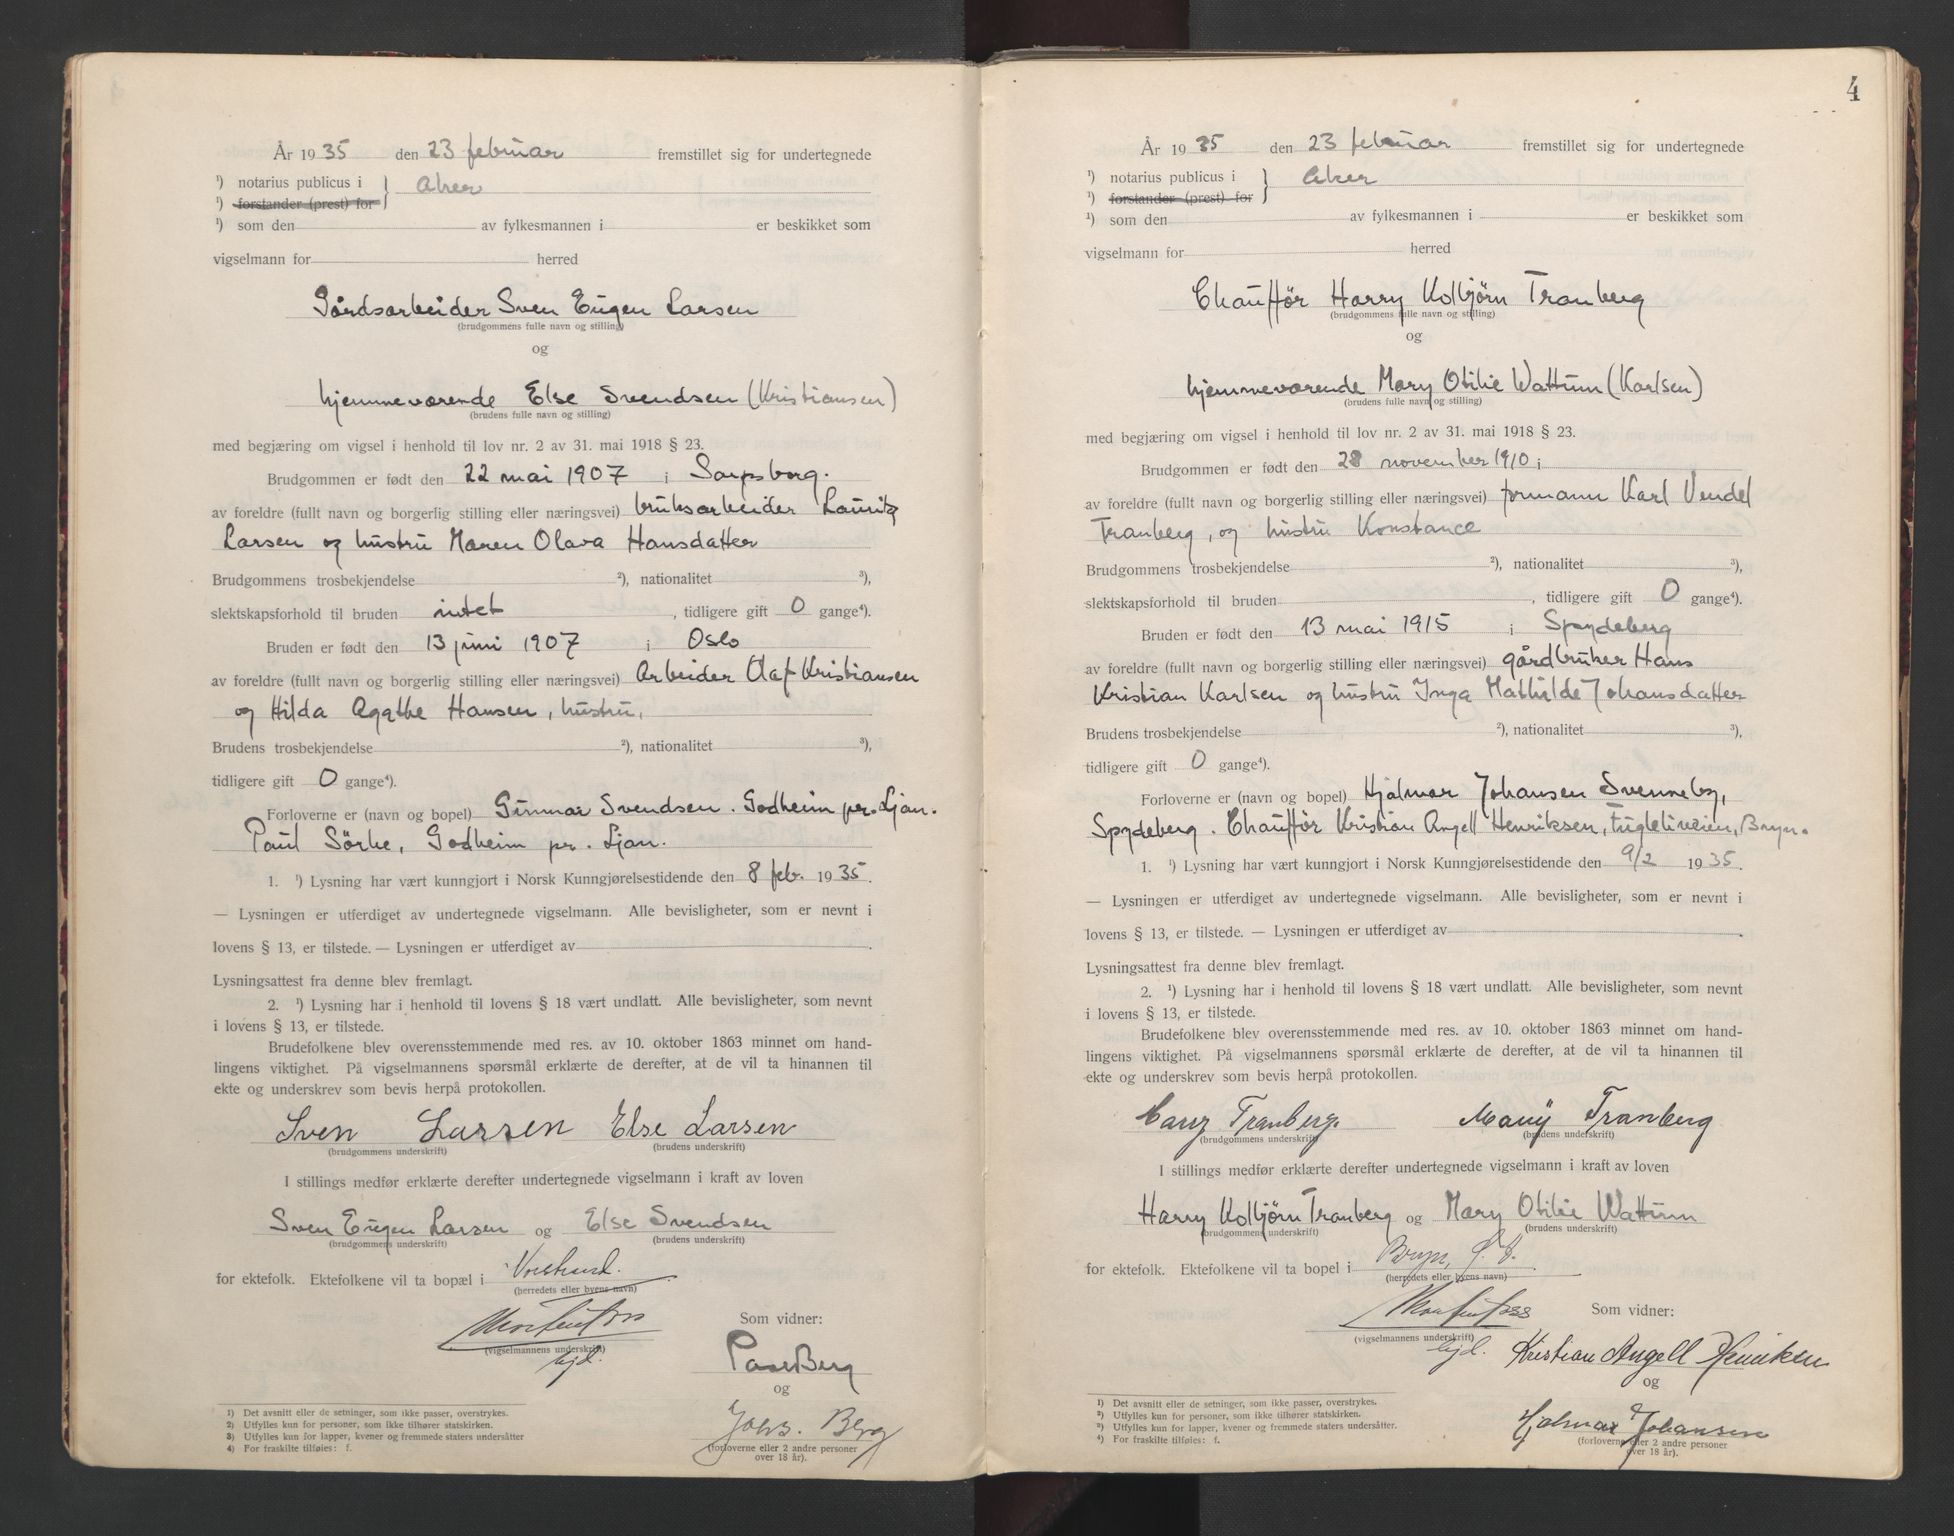 År 1935 den 23 februar fremstillet sig for undertegnede
¹) notarius publicus i } Aker
¹) forstander (prest) for
¹) som den av fylkesmannen i er beskikket som
vigselmann for herred
Gårdsarbeider Sven Eugen Larsen
(brudgommens fulle navn og stilling)
og
hjemmeværende Else Svendsen (Kristiansen)
(brudens fulle navn og stilling)
med begjæring om vigsel i henhold til lov nr. 2 av 31. mai 1918 § 23.
Brudgommen er født den 22 mai 1907 i Sarpsborg.
av foreldre (fullt navn og borgerlig stilling eller næringsvei) bruksarbeider Lauritz
Larsen og hustru Maren Olava Hansdatter
Brudgommens trosbekjendelse ²), nationalitet ³),
slektskapsforhold til bruden intet, tidligere gift 0 gange⁴).
Bruden er født den 13 juni 1907 i Oslo
av foreldre (fullt navn og borgerlig stilling eller næringsvei) Arbeider Olaf Kristiansen
og Hilda Agathe Hansen, hustru,
Brudens trosbekjendelse ²), nationalitet ³),
tidligere gift 0 gange⁴).
Forloverne er (navn og bopel) Gunnar Svendsen. Godheim pr. Ljan.
Paul Sörbe, Godheim pr. Ljan.
1. ¹) Lysning har vært kunngjort i Norsk Kunngjørelsestidende den 8 feb. 1935.
— Lysningen er utferdiget av undertegnede vigselmann. Alle bevisligheter, som er nevnt i
lovens § 13, er tilstede. — Lysningen er utferdiget av .
Lysningsattest fra denne blev fremlagt.
2. ¹) Lysning har i henhold til lovens § 18 vært undlatt. Alle bevisligheter, som nevnt
i lovens § 13, er tilstede.
Brudefolkene blev overensstemmende med res. av 10. oktober 1863 minnet om hand-
lingens viktighet. På vigselmannens spørsmål erklærte de derefter, at de vil ta hinannen til
ekte og underskrev som bevis herpå protokollen.
Sven Larsen Else Larsen
(brudgommens underskrift) (brudens underskrift)
I stillings medfør erklærte derefter undertegnede vigselmann i kraft av loven
Sven Eugen Larsen og Else Svendsen
(brudgommens underskrift) (brudens underskrift)
for ektefolk. Ektefolkene vil ta bopæl i
(herredets eller byens navn)
Som vidner:
(vigselmannens underskrift)
Berg
og
Johs. Berg
(forloverne eller 2 andre personer
over 18 år).
1) Det avsnitt eller de setninger, som ikke passer, overstrykes.
2) Utfylles kun for personer, som ikke tilhører statskirken.
3) Utfylles kun for lapper, kvener og fremmede staters undersåtter
4) For fraskilte tilføies: f.
4
År 1935 den 23 februar fremstillet sig for undertegnede
¹) notarius publicus i } Aker
¹) forstander (prest) for
¹) som den av fylkesmannen i er beskikket som
vigselmann for herred
Chauffør Harry Kolbjørn Tranberg
(brudgommens fulle navn og stilling)
og
hjemmeværende Mary Otilie Wattum (Karlsen)
(brudens fulle navn og stilling)
med begjæring om vigsel i henhold til lov nr. 2 av 31. mai 1918 § 23.
Brudgommen er født den 28 november 1910 i
av foreldre (fullt navn og borgerlig stilling eller næringsvei) formann Karl Vendel
Tranberg, og hustru Konstance
Brudgommens trosbekjendelse ²), nationalitet ³),
slektskapsforhold til bruden , tidligere gift 0 gange⁴).
Bruden er født den 13 mai 1915 i Spydeberg
av foreldre (fullt navn og borgerlig stilling eller næringsvei) gårdbruker Hans
Kristian Karlsen og hustru Inga Mathilde Johansdatter
Brudens trosbekjendelse ²), nationalitet ³),
tidligere gift 0 gange⁴).
Forloverne er (navn og bopel) Hjalmar Johansen Svenneby,
Spydeberg. Chauffør Kristian Angell Henriksen, Fugleliveien, Bryn.
1. ¹) Lysning har vært kunngjort i Norsk Kunngjørelsestidende den 9/2 1935.
— Lysningen er utferdiget av undertegnede vigselmann. Alle bevisligheter, som er nevnt i
lovens § 13, er tilstede. — Lysningen er utferdiget av .
Lysningsattest fra denne blev fremlagt.
2. ¹) Lysning har i henhold til lovens § 18 vært undlatt. Alle bevisligheter, som nevnt
i lovens § 13, er tilstede.
Brudefolkene blev overensstemmende med res. av 10. oktober 1863 minnet om hand-
lingens viktighet. På vigselmannens spørsmål erklærte de derefter, at de vil ta hinannen til
ekte og underskrev som bevis herpå protokollen.
Harry Tranberg. Mary Tranberg
(brudgommens underskrift) (brudens underskrift)
I stillings medfør erklærte derefter undertegnede vigselmann i kraft av loven
Harry Kolbjørn Tranberg og Mary Otilie Wattum
(brudgommens underskrift) (brudens underskrift)
for ektefolk. Ektefolkene vil ta bopel i Bryn,
(herredets eller byens navn)
Som vidner:
(vigselmannens underskrift)
Kristian Angell Henriksen
og
Hjalmar Johansen
(forloverne eller 2 andre personer
over 18 år).
¹) Det avsnitt eller de setninger, som ikke passer, overstrykes.
²) Utfylles kun for personer, som ikke tilhører statskirken.
³) Utfylles kun for lapper, kvener og fremmede staters undersåtter.
⁴) For fraskilte tilføies: f.